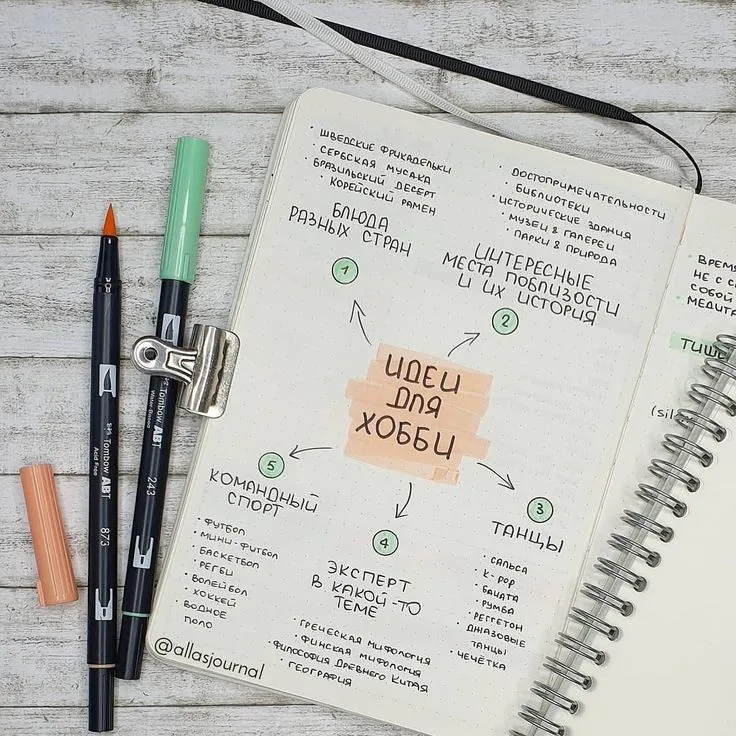 ШВЕДСКИЕ ФРИКАДЕЛЬКИ
СЕРБСКАЯ МУСАКА
БРАЗИЛЬСКИЙ ДЕСЕРТ
КОРЕЙСКИЙ РАМЕН
БЛЮДА
РАЗНЫХ СТРАН
1
ДОСТОПРИМЕЧАТЕЛЬНОСТИ
БИБЛИОТЕКИ
ИСТОРИЧЕСКИЕ ЗДАНИЯ
МУЗЕИ & ГАЛЕРЕИ
ПАРКИ & ПРИРОДА
ИНТЕРЕСНЫЕ
МЕСТА ПОБЛИЗОСТИ
И ИХ ИСТОРИЯ
2
ИДЕИ
ДЛЯ
ХОББИ
5
КОМАНДНЫЙ
СПОРТ
ФУТБОЛ
МИНИ-ФУТБОЛ
БАСКЕТБОЛ
РЕГБИ
ВОЛЕЙБОЛ
ХОККЕЙ
ВОДНОЕ
ПОЛО
4
ЭКСПЕРТ
В КАКОЙ-ТО
ТЕМЕ
ГРЕЧЕСКАЯ МИФОЛОГИЯ
ФИНСКАЯ МИФОЛОГИЯ
ФИЛОСОФИЯ ДРЕВНЕГО КИТАЯ
ГЕОГРАФИЯ
3
ТАНЦЫ
САЛЬСА
K-POP
БАЧАТА
РУМБА
РЕГГЕТОН
ДЖАЗОВЫЕ
ТАНЦЫ
ЧЕЧЁТКА
@allasjournal
ВРЕМЯ
НЕ С С
СОБОЙ
МЕДИТА
ТИШ
(sil
Tombow ABT
Acid Free
873
Tombow ABT
Water-Based
243